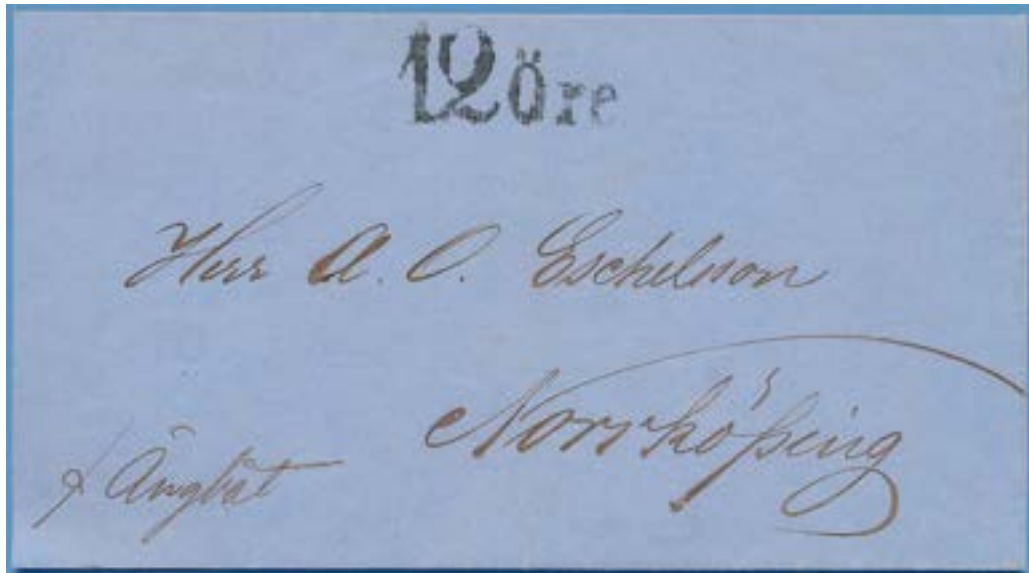 12 Öre
Herr A. O. Eschelsson
Norrköping
p Ångbåt